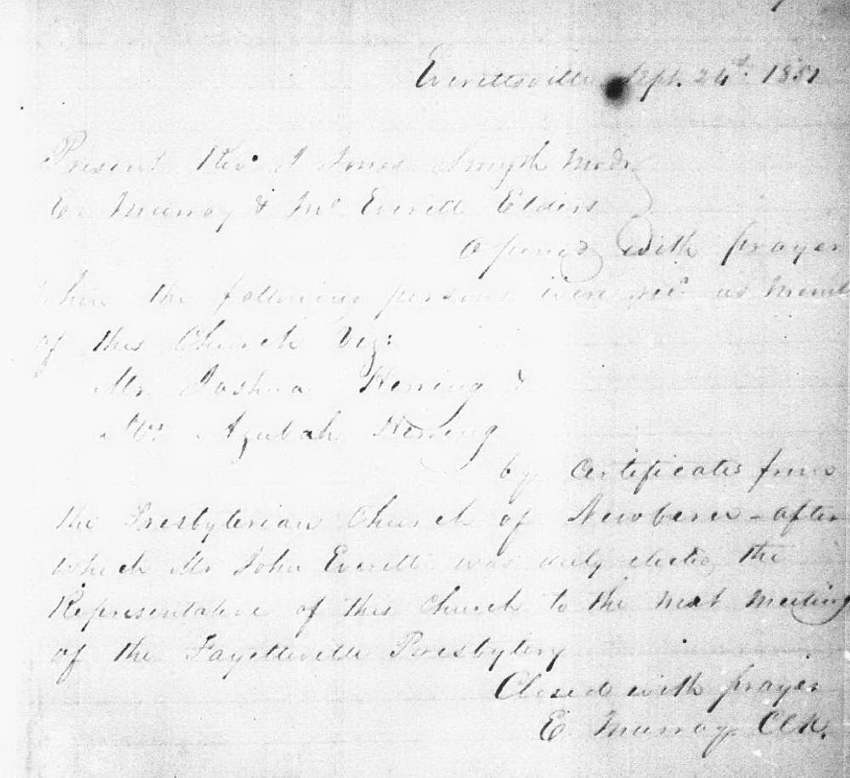 Everettsville Sept. 24th. 1851
Present Rev. J Jones Smyth Modr
E. Murray & Jno Everett Elders
Opened with prayer
When the following persons were recd as memb
of this Church Viz:
Mr Joshua Herring &
Mrs Azubah Herring
by Certificates from
the Presbyterian Church of Newbern - after
which Mr John Everett was duly elected the
Representative of this Church to the next meeting
of the Fayetteville Presbytery
Closed with prayer
E. Murray Clk.